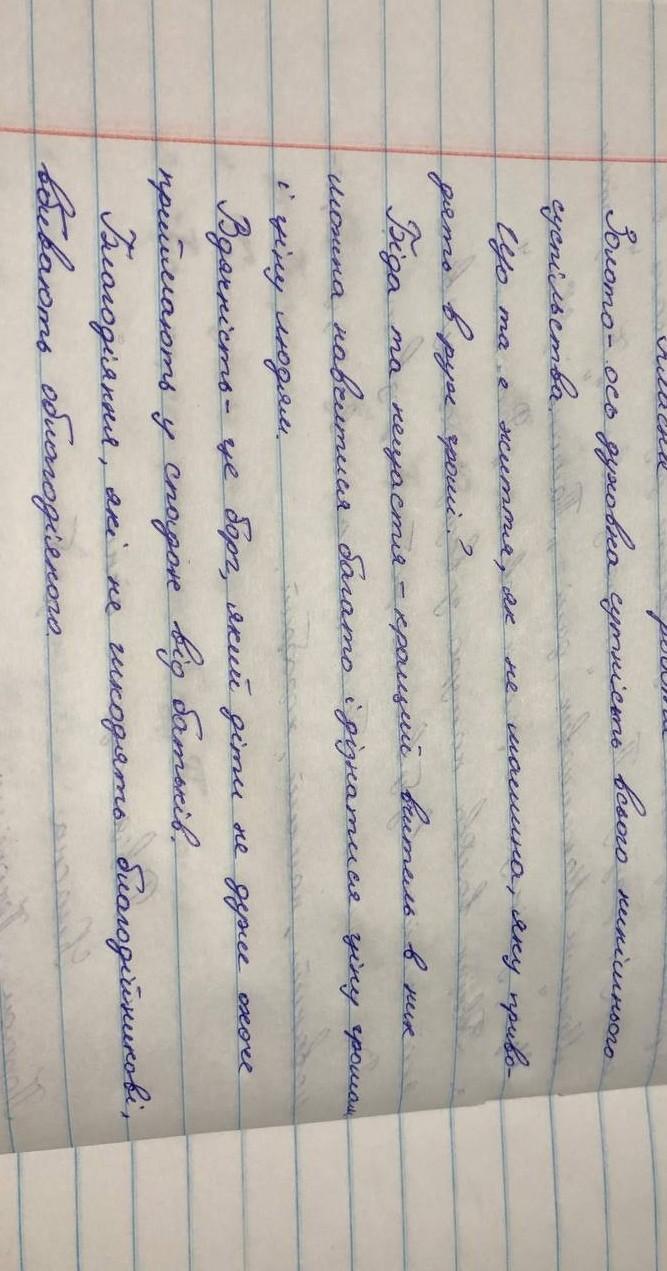 Золото - ось духовна сутність всього нинішнього
суспільства.
Що та є життя, як не машина, яку приво-
дять в рух гроші?
Біда та нещастя - кращий вчитель в них
можна навчитися багато і дізнатися ціну грошам
і ціну людям.
Вдячність - це борг, який діти не дуже охоче
приймають у спадок від батьків.
Благодіяння, які не шкодять благодійникові,
вбивають облагодіяного.